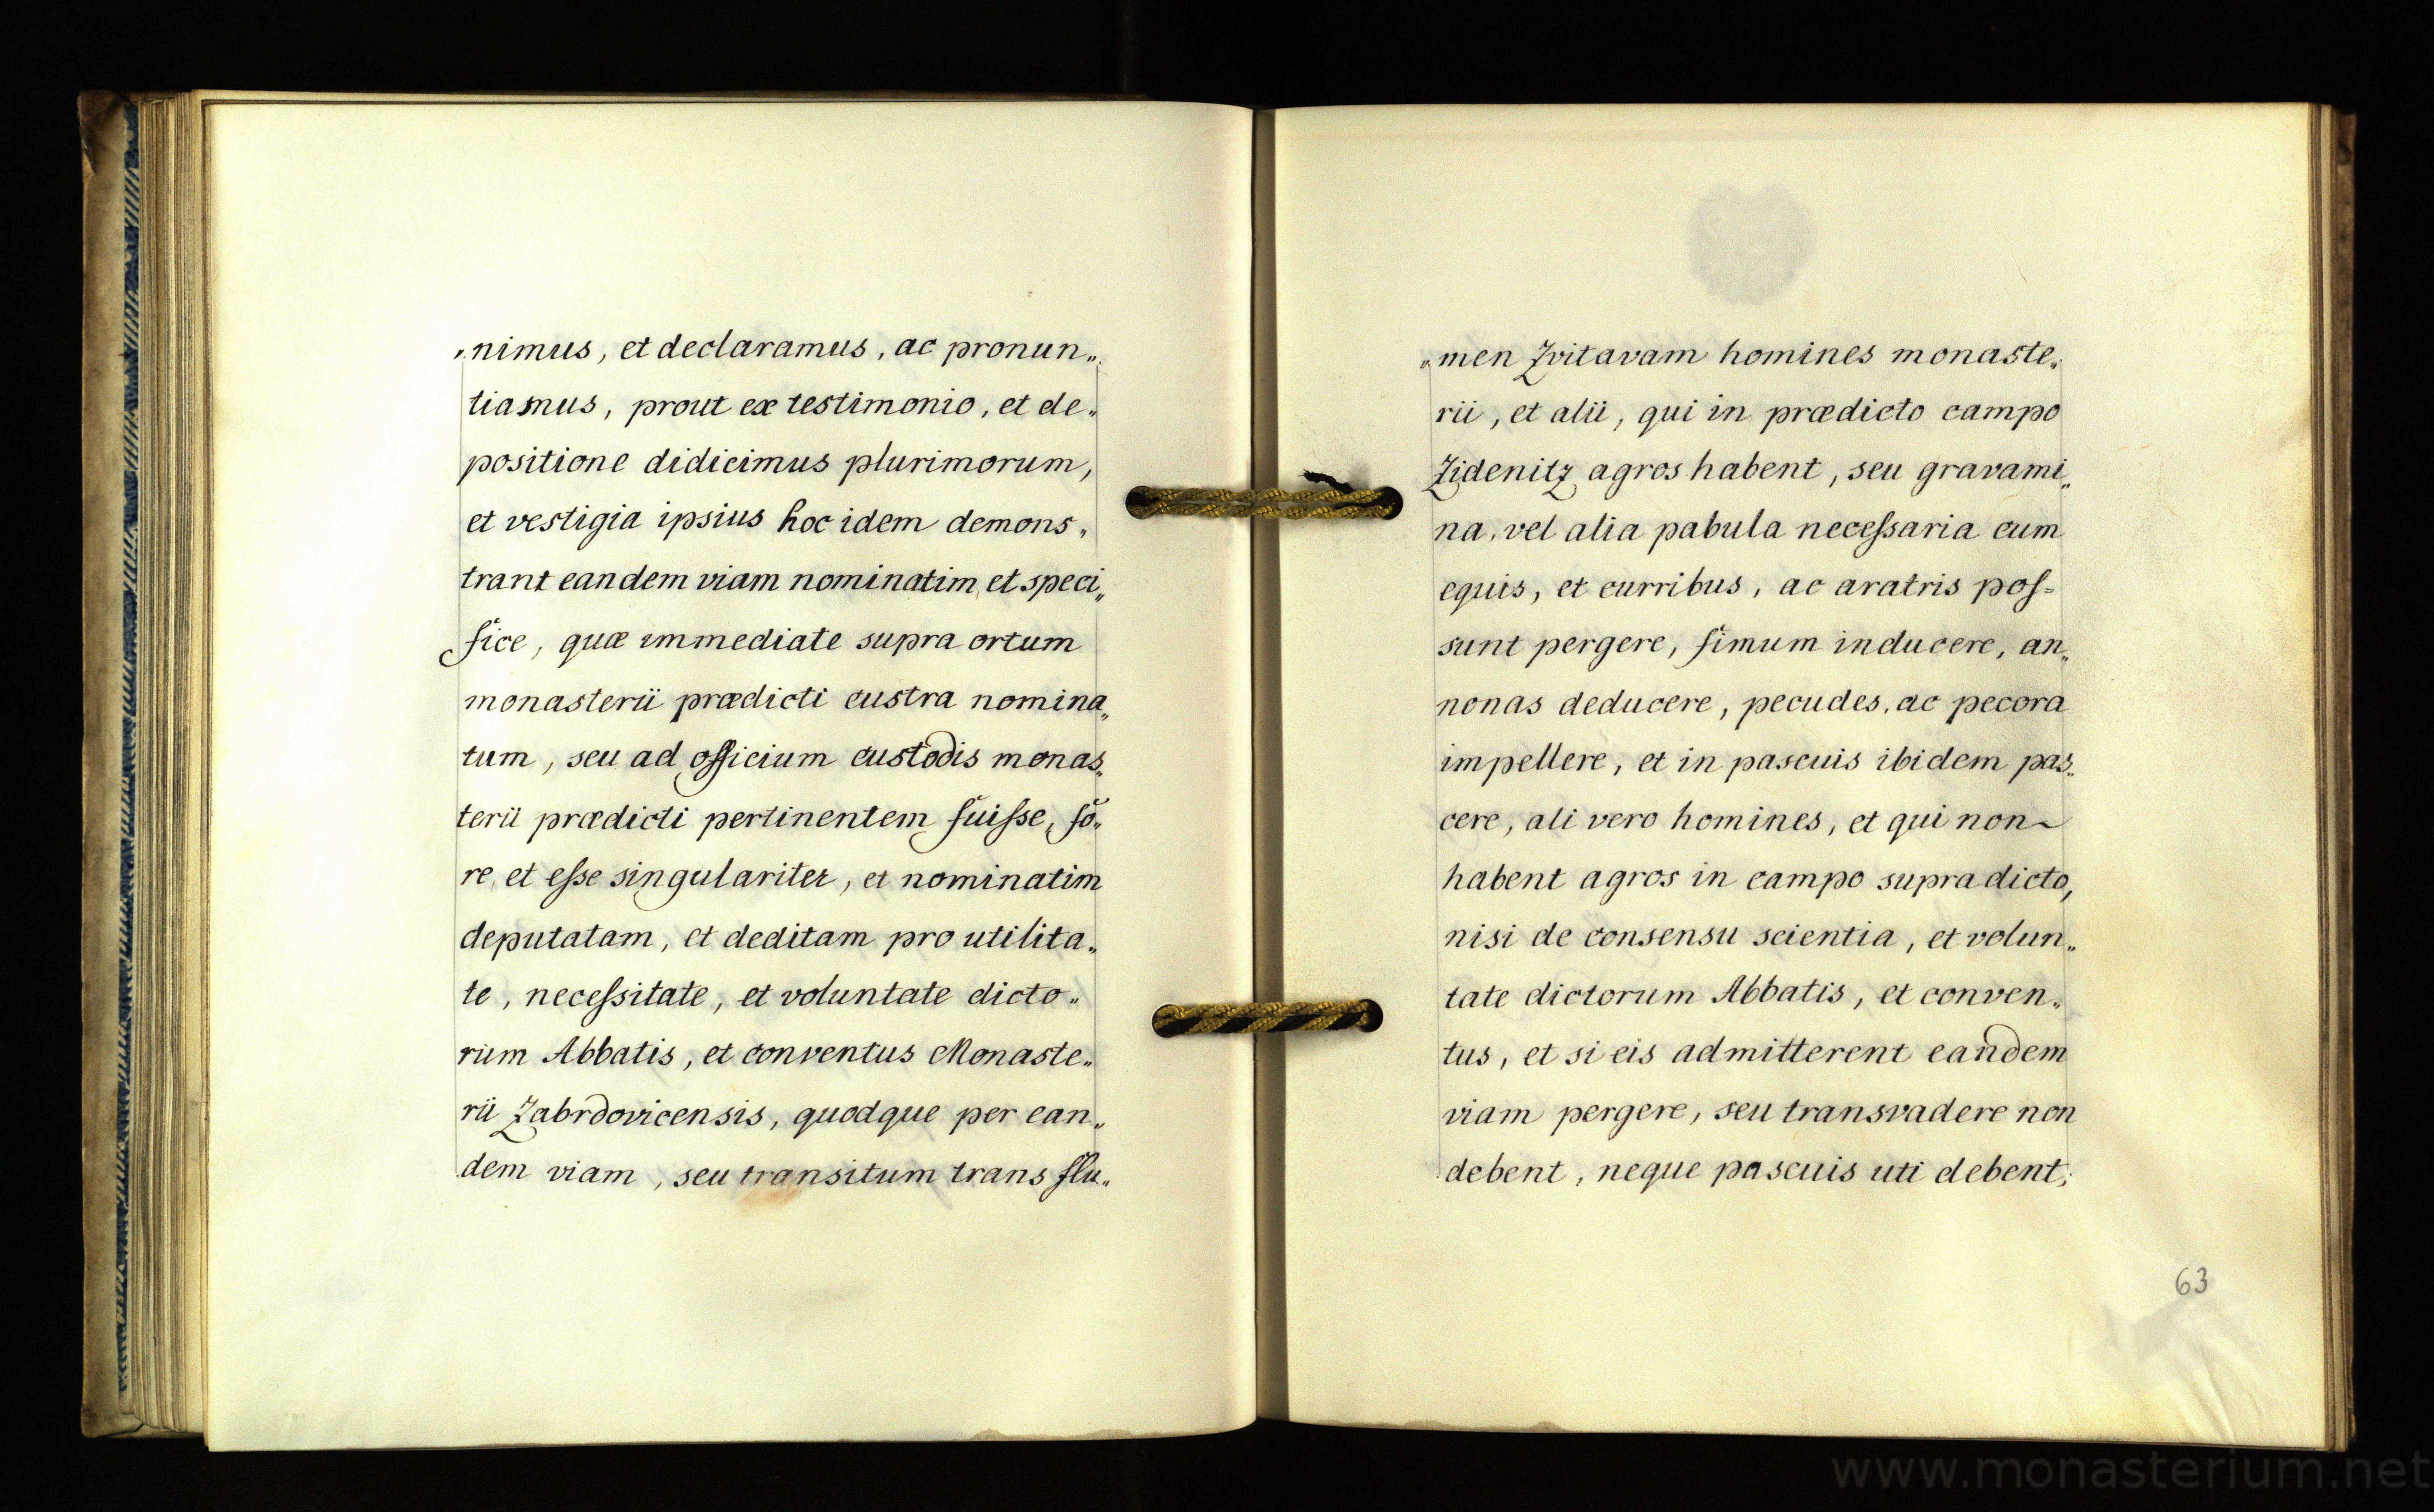 „nimus, et declaramus, ac pronun„
tiamus, prout ex testimonio, et de„
positione didicimus plurimorum,
et vestigia ipsius hoc idem demons„
trant eandem viam nominatim, et speci„
fice, quæ immediate supra ortum
monasterii prædicti custra nomina„
tum, seu ad officium custodis monas„
terii prædicti pertinentem fuiſse, fo„
re, et eſse singulariter, et nominatim
deputatam, et deditam pro utilita„
te, neceſsitate, et voluntate dicto„
rum Abbatis, et conventus Monaste„
rii Zabrdovicensis, quodque per ean„
dem viam, seu transitum trans flu„
„men Zvitavam homines monaste„
rii, et alii, qui in prædicto campo
Zidenitz agros habent, seu gravami„
na, vel alia pabula neceſsaria cum
equis, et curribus, ac aratris poſ=
sunt pergere, fimum inducere, an„
nonas deducere, pecudes, ac pecora
impellere, et in pascuis ibidem pas„
cere, ali vero homines, et qui non
habent agros in campo supradicto,
nisi de consensu scientia, et volun„
tate dictorum Abbatis, et conven„
tus, et si eis admitterent eandem
viam pergere, seu transvadere non
debent, neque pascuis uti debent;
63
www.monasterium.net